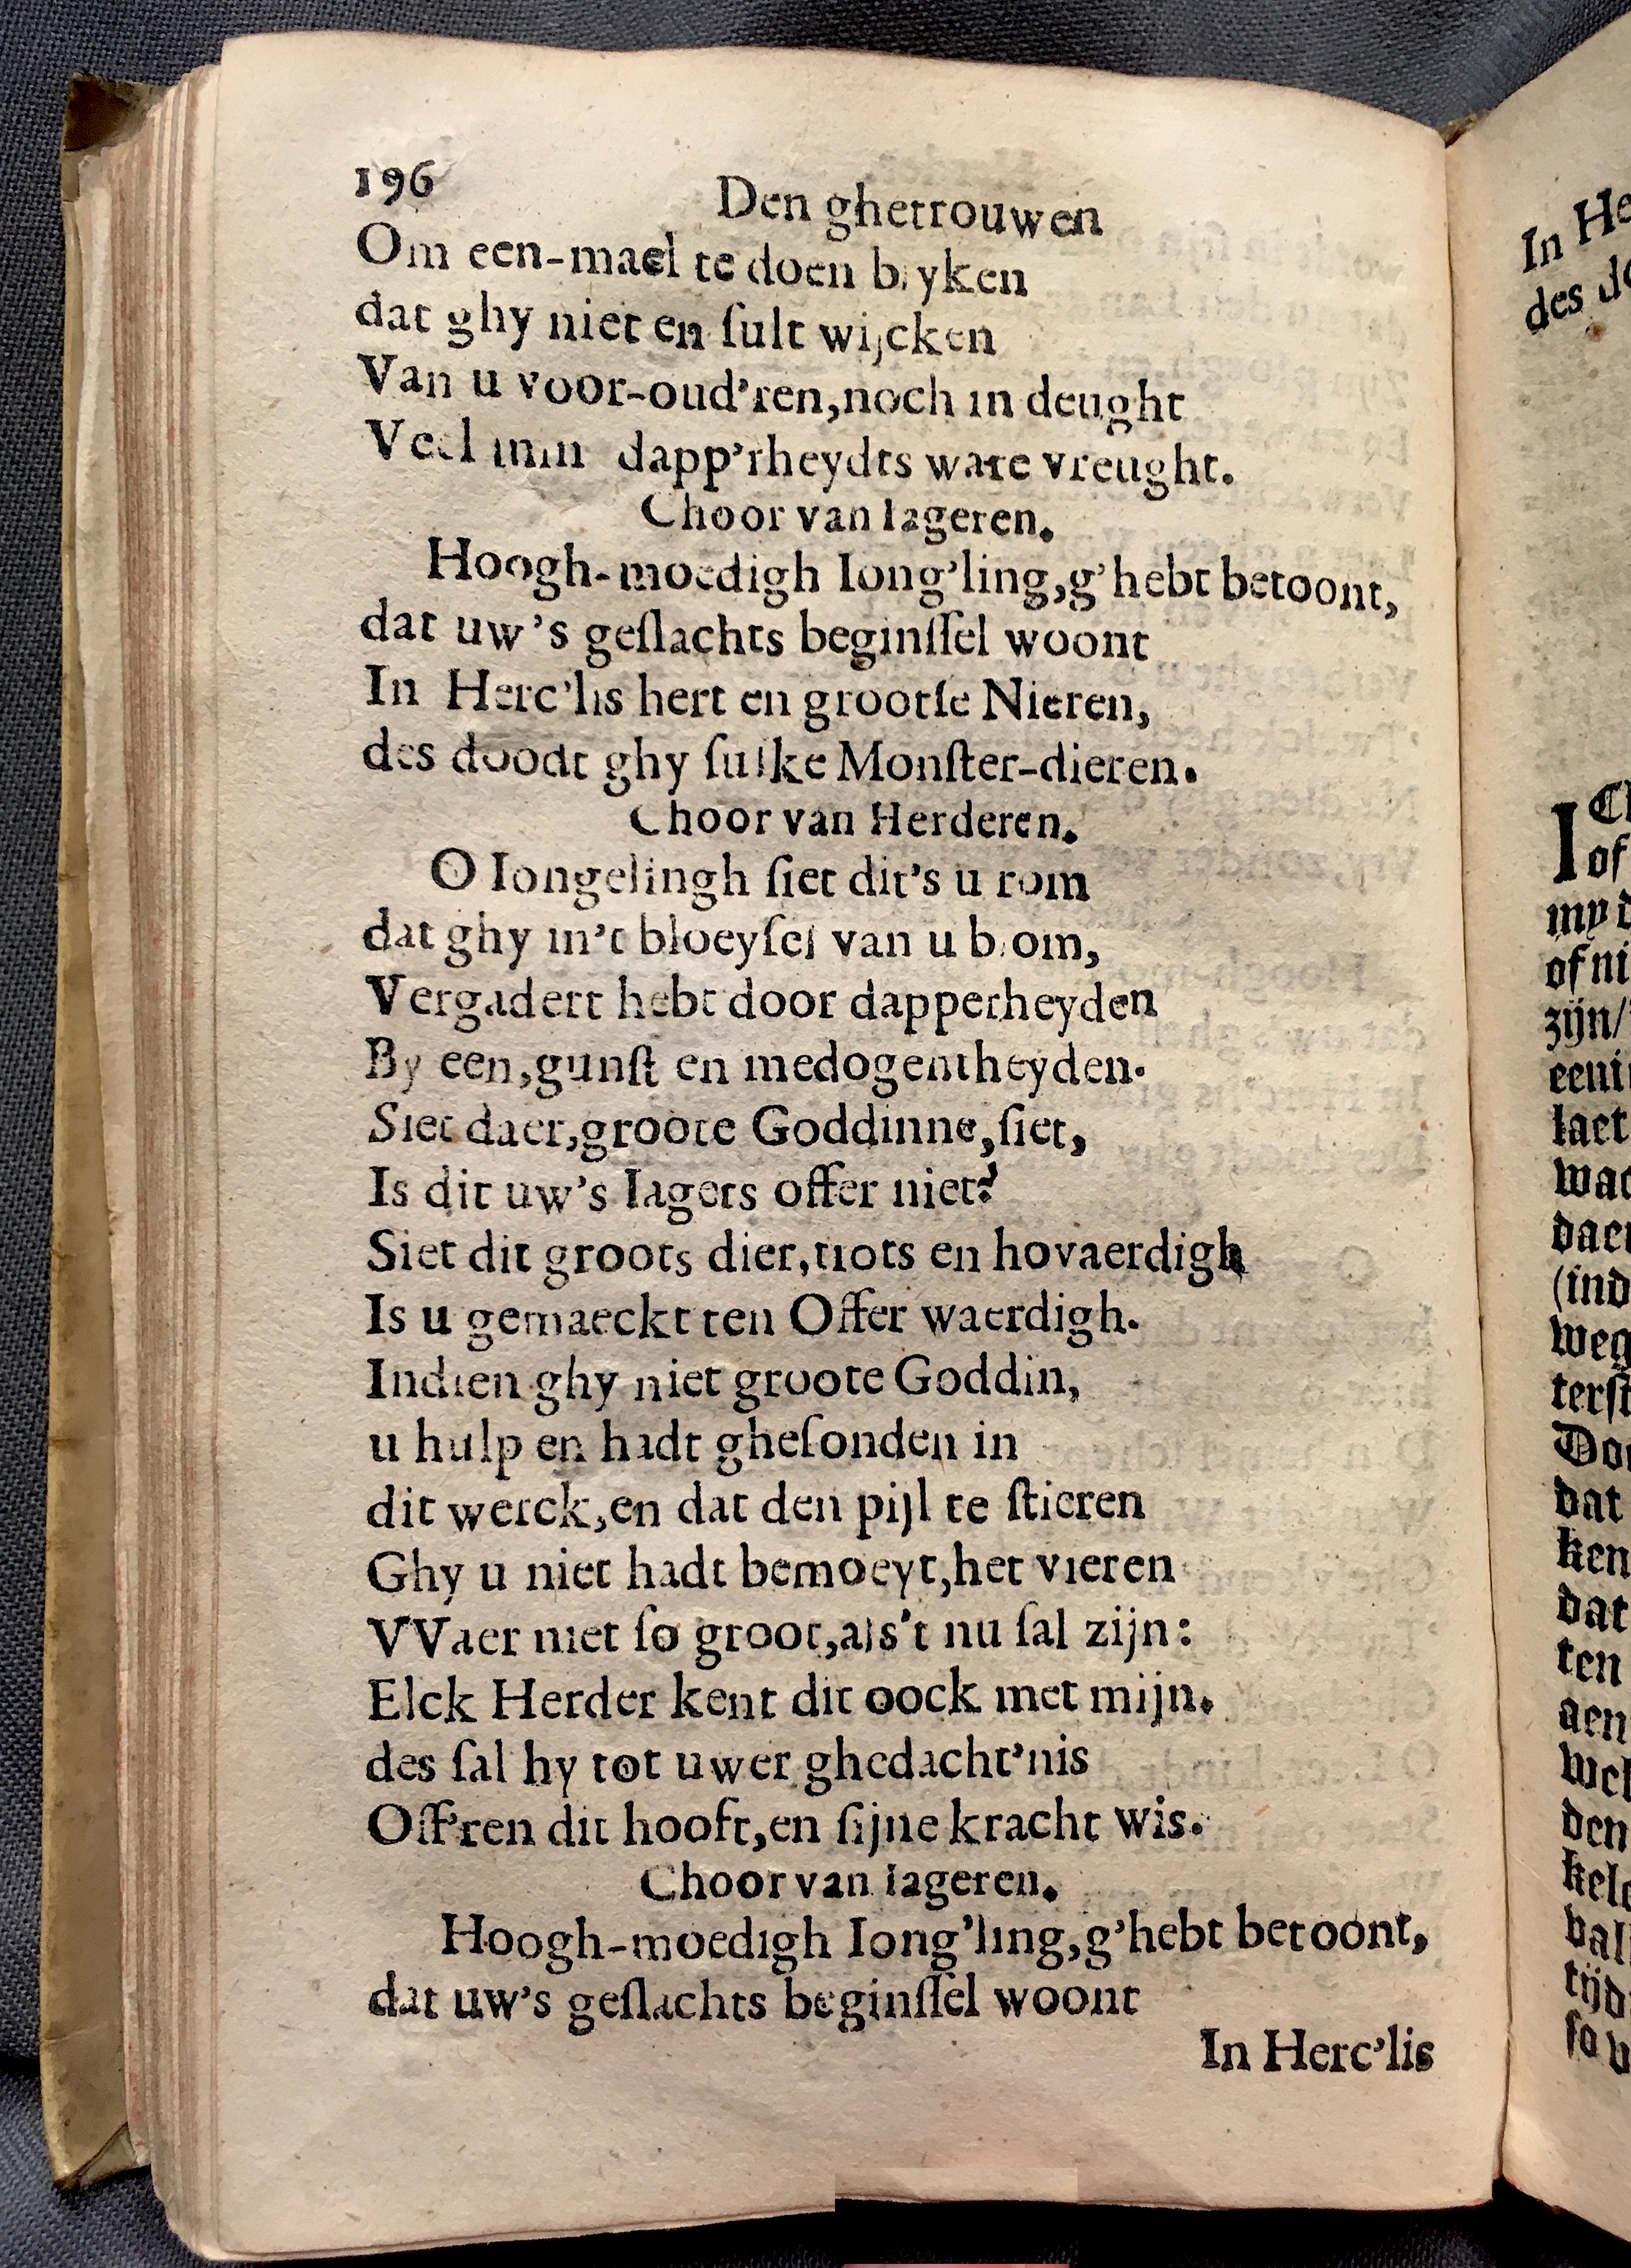 196
Den ghetrouwen
Om een-mael te doen blyken
dat ghy niet en ſult wijcken
Van u voor-oud’ren,noch in deught
Veel min dapp’rheydts ware vreught.
Choor van Iageren.
Hoogh-moedigh Iong’ling,g’hebt betoont,
dat uw’s geſlachts beginſſel woont
In Herc’lis hert en grootſe Nieren,
des doodt ghy ſulke Monſter-dieren.
Choor van Herderen.
O Iongelingh ſiet dit’s u rom
dat ghy in’t bloeyſel van u blom,
Vergadert hebt door dapperheyden
By een,gunſt en medogentheyden.
Siet daer,groote Goddinne,ſiet,
Is dit uw’s Iagers offer niet?
Siet dit groots dier,trots en hovaerdigh
Is u gemaeckt ten Offer waerdigh.
Indien ghy niet groote Goddin,
u hulp en hadt gheſonden in
dit werck,en dat den pijl te ſtieren
Ghy u niet hadt bemoeyt,het vieren
VVaer niet ſo groot,als’t nu ſal zijn:
Elck Herder kent dit oock met mijn.
des ſal hy tot uwer ghedacht’nis
Off’ren dit hooft,en ſijne kracht wis.
Choor van Iageren.
Hoogh-moedigh Iong’ling,g’hebt betoont,
dat uw’s geſlachts beginſſel woont
In Herc’lis
In He
des do
of
my d
of ni
zijn/
eeni
laet
daer
(ind
weg
terſt
dat
ken
dat
ten
aen
den